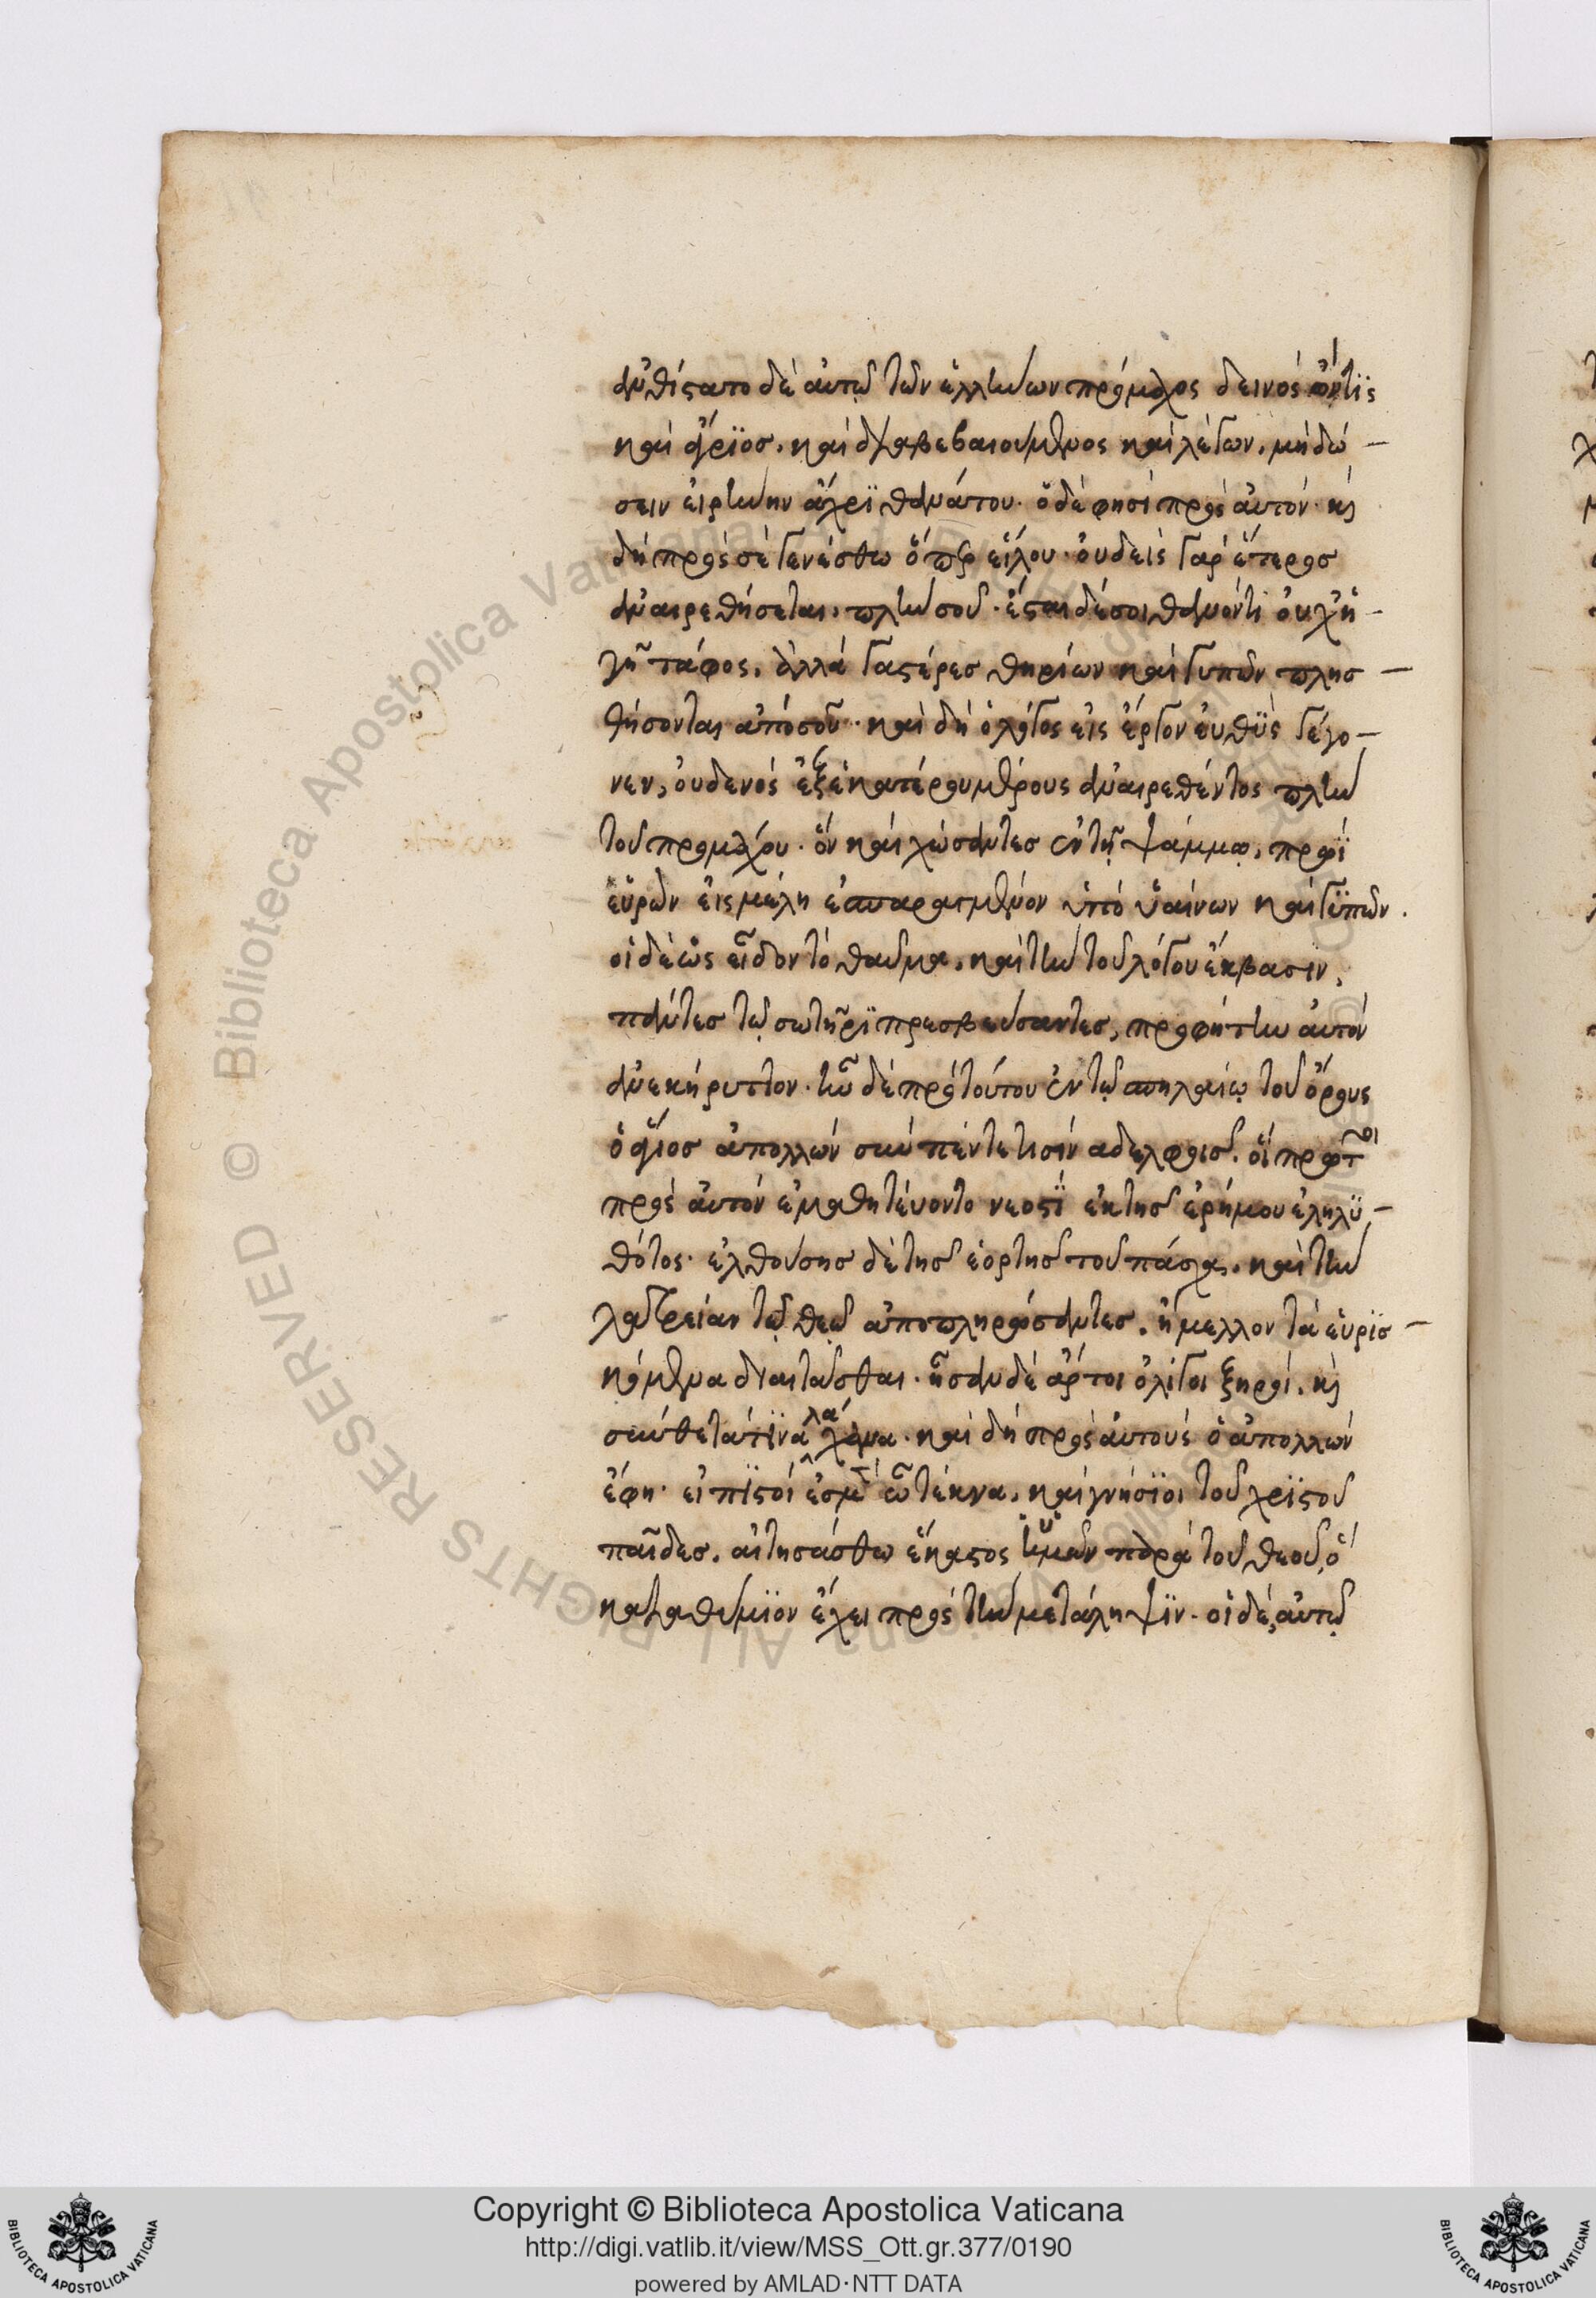 ἀνθίστατο δὲ αὐτῷ τῶν ἑλλήνων πρόμαχος δεινός ὤν τϊς
καὶ ἄγριος, καὶ διαβεβαιούμενος καὶ λέγων, μὴ δώ-
σειν εἰρήνην ἄχρϊ θανάτου. ὁ δέ φησὶ πρὸς αὐτόν. κὶ
δὴ πρὸς σὲ γενέσθω ὅπερ εἵλου. οὐδεὶς γὰρ ἕτερος
ἀναιρεθήσεται, πλὴν σοῦ. ἔσται δέ σοι θανόντι οὐχ ἡ-
γῆ τάφος, ἀλλὰ γαστέρες θηρίων καὶ γυπῶν πλησ-
θήσονται ἀπὸ σοῦ. καὶ δὴ ὁ λόγος εἰς ἔργον εὐθῢς γέγο-
νεν, οὐδενὸς ἐξ ἑκατέρου μέρους ἀναιρεθέντος πλὴν
τοῦ προμάχου. ὅν καὶ χώσαντες ἐν τῇ ψάμμῳ, πρωΐ
εὗρον εἰς μέλη ἐσπαραγμένον ὑπὸ ὑαίνων καὶ γϋπῶν.
οἱ δὲ ὡς εἶδον τὸ θαῦμα, καὶ τὴν τοῦ λόγου ἔκβασιν,
πάντες τῷ σωτῆρϊ πρεσβεύσαντες, προφήτην αὐτὸν
ἀνεκήρυττον. ἦν δὲ πρὸ τούτου ἐν τῷ σπηλαίῳ τοῦ ὄρους
ὁ ἅγιος ἀπολλών σὺν πέντε τισὶν ἀδελφοῖς. οἵ πρῶτοι
πρὸς αὐτὸν ἐμαθητεύοντο νεοστΐ ἐκ τῆς ἐρήμου ἐληλϋ-
θότος. ἐλθούσης δὲ τῆς ἑορτῆς τοῦ πάσχα, καὶ τὴν
λατρείαν τῷ θεῷ ἀποπληρώσαντες, ἤμελλον τὰ εὑρϊσ-
κόμενα διαιτᾶσθαι. ἦσαν δὲ ἄρτοι ὀλίγοι ξηροί, κὶ
σύνθετά τϊνα λάχανα. καὶ δὴ πρὸς αὐτοὺς ὁ ἀπολλών
ἔφη. εἰ πϊστοί ἐσμὲν ὦ τέκνα, καὶ γνήσϊοι τοῦ χρϊστοῦ
παῖδες, αἰτησάσθω ἕκαστος ὑμῶν παρὰ τοῦ θεοῦ, ὅ
καταθύμϊον ἔχει πρὸς τὴν μετάληψϊν. οἱ δὲ, αὐτῷ
Copyright © Biblioteca Apostolica Vaticana
http://digi.vatlib.it/view/MSS_Ott.gr.377/0190
powered by AMLAD·NTT DATA